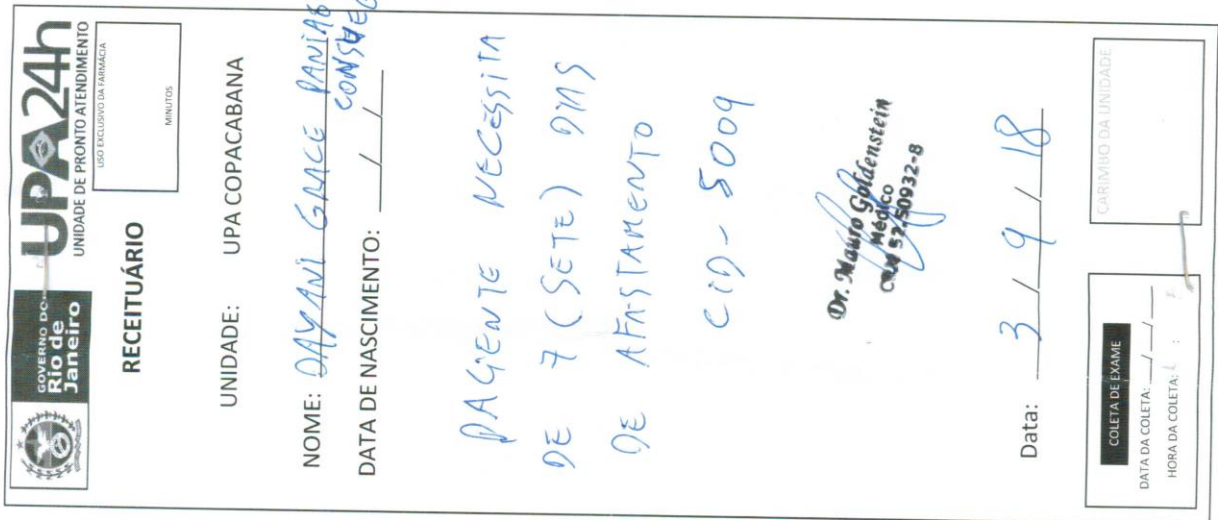 GOVERNO DO
Rio de
Janeiro
UPA24h
UNIDADE DE PRONTO ATENDIMENTO
USO EXCLUSIVO DA FARMÁCIA
MINUTOS
RECEITUÁRIO
UNIDADE: UPA COPACABANA
NOME: DAYANI GRACE
DATA DE NASCIMENTO: / /
PACIENTE NECESSITA
DE 7 (SETE) DIAS
DE AFASTAMENTO
CID - S009
Dr. Mauro Goldenstein
Médico
CRM 52-50932-8
Data: 3 / 9 / 18
COLETA DE EXAME
DATA DA COLETA: / /
HORA DA COLETA: :
CARIMBO DA UNIDADE